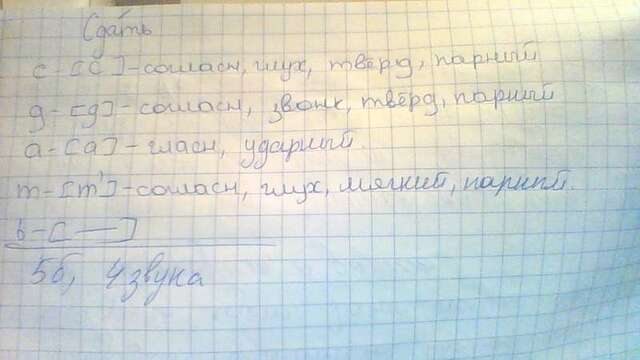 Сдать
с-[с]-согласн, глух, твёрд, парный
д-[д]-согласн, звонк, твёрд, парный
а-[а]-гласн, ударный.
т-[т']-согласн, глух, мягкий, парный.
ь-[—]
5б, 4 звука